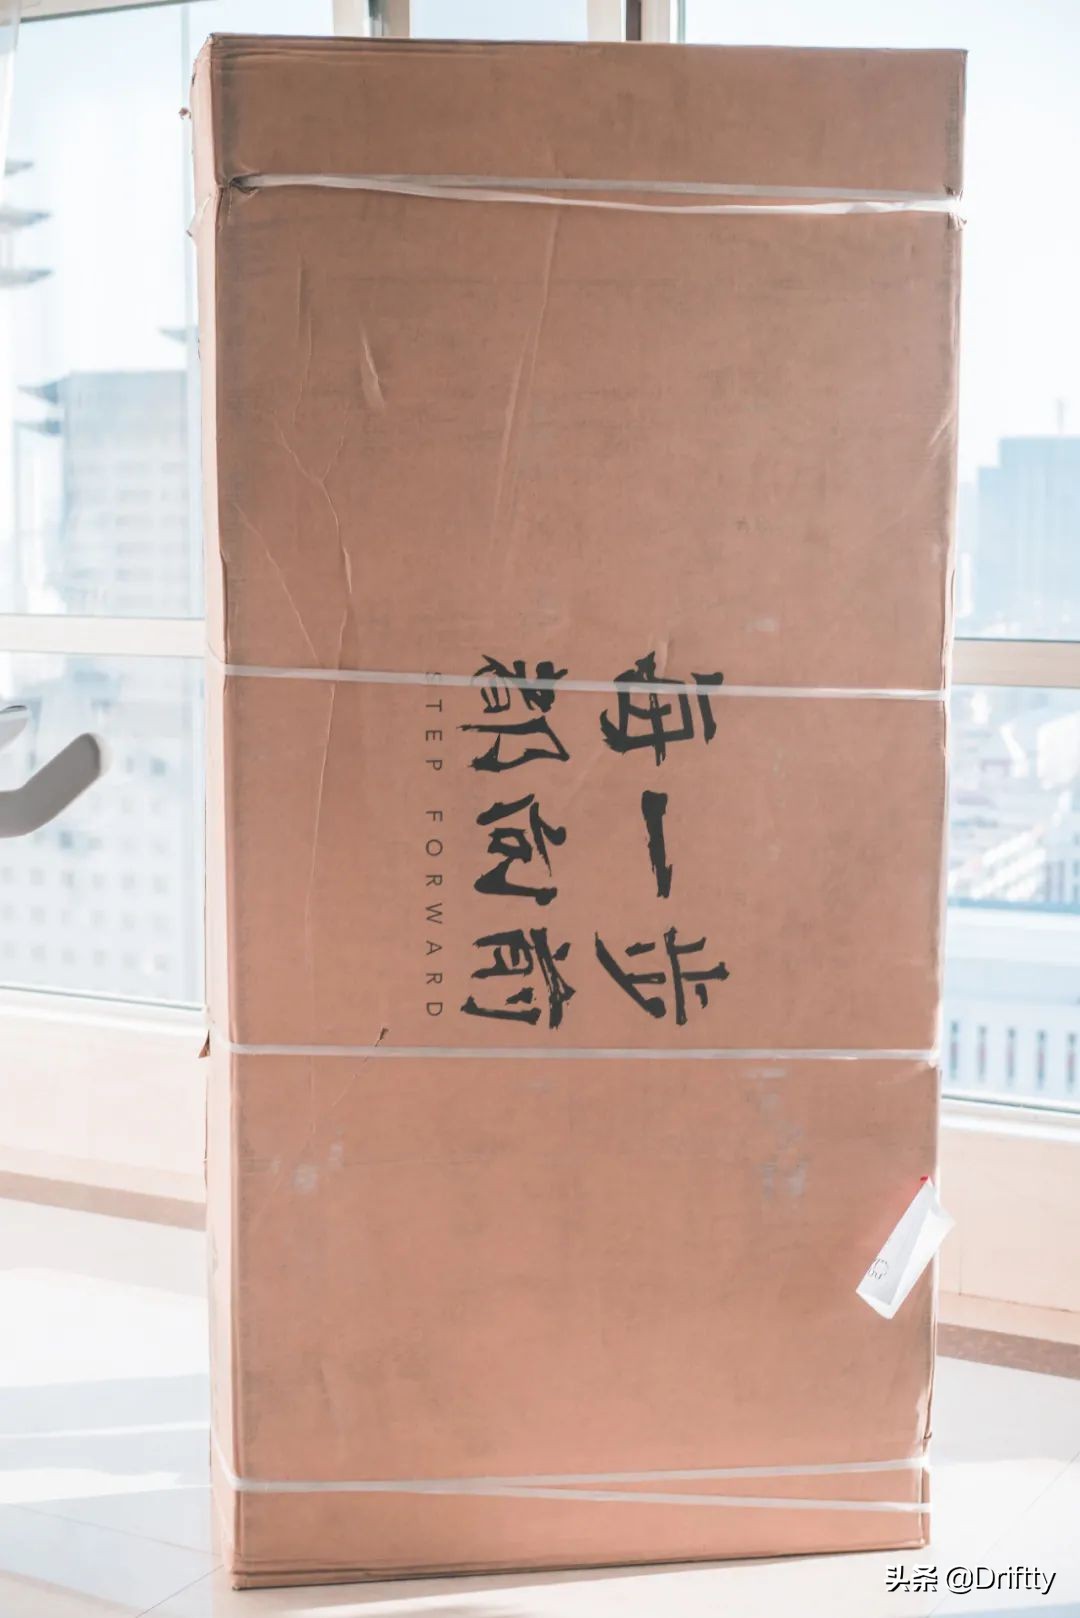 每一步
都向前
STEP FORWARD
头条 @Driftty